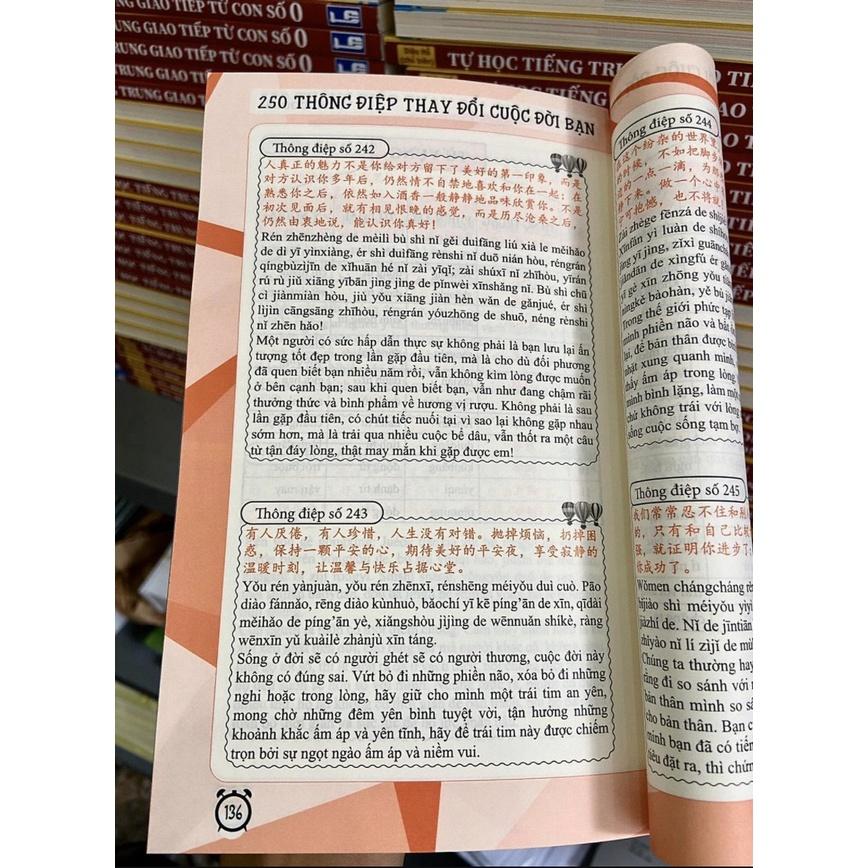 GIAO TIẾP TỪ CON SỐ 0
TRUNG GIAO TIẾP TỪ CON SỐ 0
TRUNG GIAO TIẾP TỪ CON SỐ 0
TỰ HỌC TIẾNG
250 THÔNG ĐIỆP THAY ĐỔI CUỘC ĐỜI BẠN
Thông điệp số 242
人真正的魅力不是你给对方留下了美好的第一印象，而是
对方认识你多年后，仍然情不自禁地喜欢和你在一起；在
熟悉你之后，依然如入酒香一般静静地品味欣赏你。不是
初次见面后，就有相见恨晚的感觉，而是历尽沧桑之后，
仍然由衷地说，能认识你真好！
Rén zhēnzhèng de mèilì bù shì nǐ gěi duìfāng liú xià le měihǎo
de dì yī yìnxiàng, ér shì duìfāng rènshi nǐ duō nián hòu, réngrán
qíngbùzìjīn de xǐhuān hé nǐ zài yīqǐ; zài shúxī nǐ zhīhòu, yīrán
rú rù jiǔ xiāng yībān jìng jìng de pǐnwèi xīnshǎng nǐ. Bù shì chū
cì jiànmiàn hòu, jiù yǒu xiāng jiàn hèn wǎn de gǎnjué, ér shì
lìjìn cāngsāng zhīhòu, réngrán yóuzhōng de shuō, néng rènshi
nǐ zhēn hǎo!
Một người có sức hấp dẫn thực sự không phải là bạn lưu lại ấn
tượng tốt đẹp trong lần gặp đầu tiên, mà là cho dù đối phương
đã quen biết bạn nhiều năm rồi, vẫn không kìm lòng được muốn
ở bên cạnh bạn; sau khi quen biết bạn, vẫn như đang chậm rãi
thưởng thức và bình phẩm về hương vị rượu. Không phải là sau
lần gặp đầu tiên, có chút tiếc nuối tại vì sao lại không gặp nhau
sớm hơn, mà là trải qua nhiều cuộc bể dâu, vẫn thốt ra một câu
từ tận đáy lòng, thật may mắn khi gặp được em!
Thông điệp số 243
有人厌倦，有人珍惜，人生没有对错。抛掉烦恼，扔掉困
惑，保持一颗平安的心，期待美好的平安夜，享受寂静的
温暖时刻，让温馨与快乐占据心堂。
Yǒu rén yànjuàn, yǒu rén zhēnxī, rénshēng méiyǒu duì cuò. Pāo
diào fánnǎo, rēng diào kùnhuò, bǎochí yī kē píng’ān de xīn, qīdài
měihǎo de píng’ān yè, xiǎngshòu jìjìng de wēnnuǎn shíkè, ràng
wēnxīn yǔ kuàilè zhànjù xīn táng.
Sống ở đời sẽ có người ghét sẽ có người thương, cuộc đời này
không có đúng sai. Vứt bỏ đi những phiền não, xóa bỏ đi những
nghi hoặc trong lòng, hãy giữ cho mình một trái tim an yên,
mong chờ những đêm yên bình tuyệt vời, tận hưởng những
khoảnh khắc ấm áp và yên tĩnh, hãy để trái tim này được chiếm
trọn bởi sự ngọt ngào ấm áp và niềm vui.
136
Thông điệp số 244
这个纷杂的世界里
时候，不如把脚步
的一点一滴，为那
静下来。做一个心中
宁可抱憾，也不将就
Zài zhège fēnzá de shìjiè
xīnfán yì luàn de shíhou
jìng yī jìng, zǐxì guānchá
jiǎndān de xìngfú ér gǎn
yī gè xīn zhōng yǒu
nìngkě bàohàn, yě bù
Trong thế giới phức tạp
mình phiền não và bất
lại, để bản thân được
nhặt xung quanh mình,
thấy ấm áp trong lòng
mình bình lặng, làm một
chứ không trái với lòng
sống cuộc sống tạm bợ.
Thông điệp số 245
我们常常忍不住和别
的，只有和自己比较
强，就证明你进步了
你成功了。
Wǒmen chángcháng rěn
bǐjiào shì méiyǒu yìyì
jiàzhí de. Nǐ de jīntiān
zhǐyào nǐ lí zìjǐ de mù
Chúng ta thường hay
rằng đi so sánh với
bản thân mình so
cho bản thân. Bạn
minh bạn đã có tiến
tiêu đặt ra, thì chứng